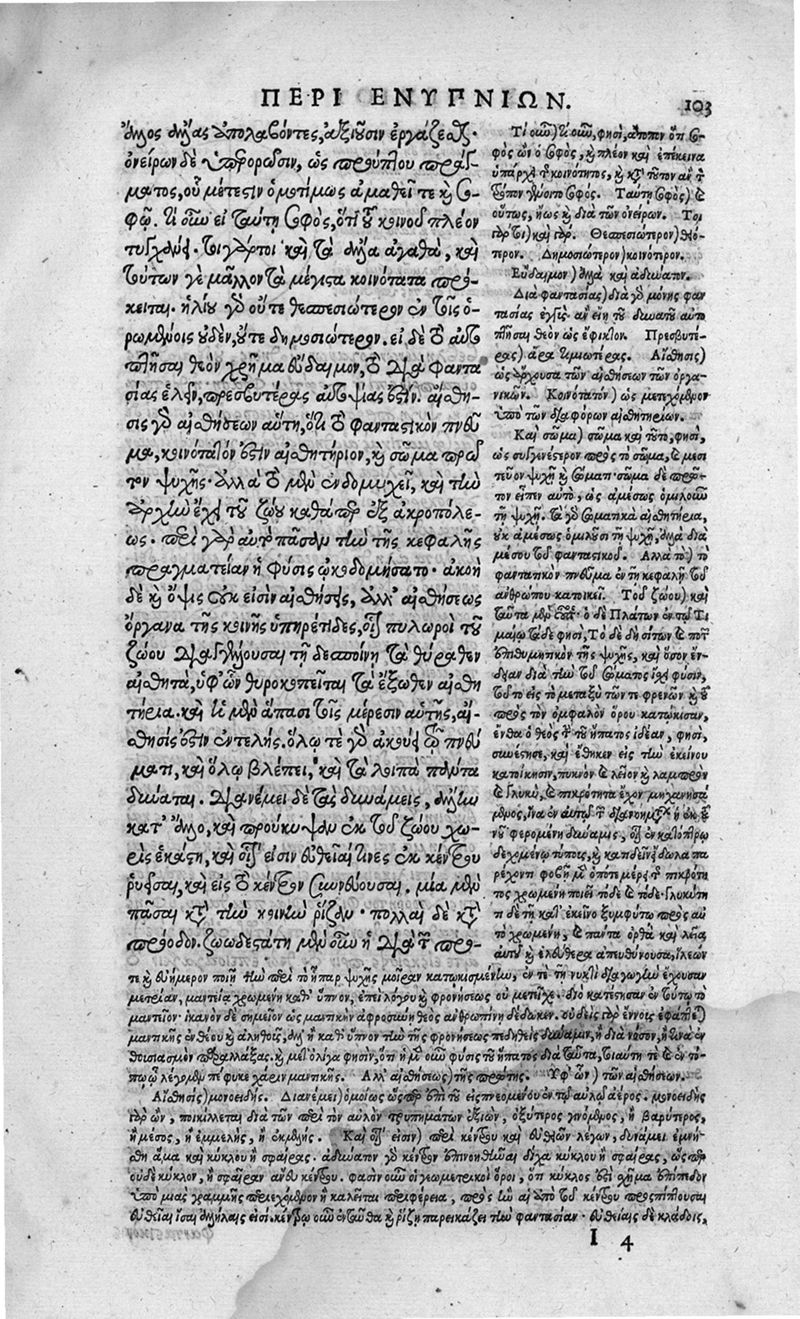 ΠΕΡΙ ΕΝΥΠΝΙΩΝ. 103
ἄλλος ἄλλας ἀπολαβόντες, ἀξιοῦσιν ἐργάζεσθαι·
ὀνείρων δὲ ὑπερορῶσιν, ὡς προύπτου πράγ-
ματος, οὗ μέτεστιν ὁμοτίμως ἀμαθεῖ τε καὶ σο-
φῷ. τί οὖν εἰ ταύτῃ σοφὸς, ὅτι τοῦ κοινοῦ πλέον
τυγχάνει. τί γάρτοι καὶ τὰ ἄλλα ἀγαθὰ, καὶ
τούτων γε μᾶλλον τὰ μέγιστα κοινότατα πρό-
κειται. ἡλίου γὰρ οὔτε θεσπεσιώτερον ἐν τοῖς ὁ-
ρωμένοις οὐδὲν, οὔτε δημοσιώτερον. εἰ δὲ τὸ αὐτο
πτῆσαι θεὸν χρῆμα εὔδαιμον, τὸ διὰ φαντα
σίας ἑλεῖν, πρεσβυτέρας αὐτοψίας ἐστίν. αἴσθη-
σις γὰρ αἰσθήσεων αὕτη, ὅτι τὸ φανταστικὸν πνεῦ
μα, κοινότατόν ἐστιν αἰσθητήριον, καὶ σῶμα πρῶ
τον ψυχῆς. ἀλλὰ τὸ μὲν ἐνδομυχεῖ, καὶ τὴν
ἀρχὴν ἔχει τοῦ ζώου καθάπερ ἐξ ἀκροπόλε-
ως. περὶ γὰρ αὐτὸ πᾶσαν τὴν τῆς κεφαλῆς
πραγματείαν ἡ φύσις ᾠκοδομήσατο. ἀκοὴ
δὲ καὶ ὄψις οὐκ εἰσὶν αἰσθήσεις, ἀλλ' αἰσθήσεως
ὄργανα τῆς κοινῆς ὑπηρέτιδες, οἷον πυλωροὶ τοῦ
ζώου διαγγέλλουσαι τῇ δεσποίνῃ τὰ θύραθεν
αἰσθητὰ, ὑφ' ὧν θυροκοπεῖται τὰ ἔξωθεν αἰσθη
τήρια. καὶ ἡ μὲν ἅπασι τοῖς μέρεσιν αὐτῆς, αἴ-
σθησίς ἐστιν ἐντελής. ὅλῳ τε γὰρ ἀκούει τῷ πνεύ
ματι, καὶ ὅλῳ βλέπει, καὶ τὰ λοιπὰ πάντα
δύναται. διανέμει δὲ τὰς δυνάμεις, ἄλλην
κατ' ἄλλο, καὶ προὔκυψαν ἐκ τοῦ ζώου χω-
ρὶς ἑκάστη, καὶ οἷον εἰσὶν εὐθεῖαί τινες ἐκ κέντρου
ῥυεῖσαι, καὶ εἰς τὸ κέντρον συννεύουσαι. μία μὲν
πᾶσαι κατὰ τὴν κοινὴν ῥίζαν· πολλαὶ δὲ κατὰ
πρόοδον. ζωωδεστάτη μὲν οὖν ἡ διὰ τῶν προβε-
Τί οὖν) τί οὖν, φησὶ, ἄτοπον ὅτι σο-
φὸς ὢν ὁ σοφὸς,
ὑπάρχει τῆς κοινότητος, καὶ κατὰ τοῦτον ἂν τὸν
τρόπον γένοιτο σοφός. Ταύτῃ σοφὸς)
οὕτως, ἤως καὶ διὰ τῶν ὀνείρων. Τοι
γὰρ τοι) καὶ γάρ. Θεσπεσιώτερον) θειό-
τερον. Δημοσιώτερον) κοινότερον.
Εὔδαιμον) ἀλλὰ καὶ ἀδύνατον.
Διὰ φαντασίας) διὰ γὰρ μόνης φαν
τασίας
πτῆσαι θεὸν ὡς ἐφικτόν. Πρεσβυτέ-
ρας) ἄρα τιμιωτέρας. Αἴσθησις)
ὡς ἄρχουσα τῶν αἰσθήσεων τῶν ὀργα-
νικῶν. Κοινότατον) ὡς μετεχόμενον
ὑπὸ τῶν διαφόρων αἰσθητηρίων.
Καὶ σῶμα) σῶμα καὶ τοῦτο, φησὶ,
ὡς συγγενέστερον πρὸς τὸ σῶμα, καὶ μεσι
τεῦον ψυχῇ καὶ σώματι· σῶμα δὲ πρῶ-
τον εἶπεν αὐτὸ, ὡς ἀμέσως ὁμιλοῦν
τῇ ψυχῇ. τὰ γὰρ σωματικὰ αἰσθητήρια,
οὐκ ἀμέσως ὁμιλοῦσι τῇ ψυχῇ, ἀλλὰ διὰ
μέσου τοῦ φανταστικοῦ. Ἀλλὰ τὸ) τὸ
φανταστικὸν πνεῦμα ἐν τῇ κεφαλῇ τοῦ
ἀνθρώπου κατοικεῖ. Τοῦ ζώου) καὶ
ταῦτα μὲν οὕτως. ὁ δὲ Πλάτων ἐν τῷ Τι
μαίῳ τάδε φησὶ, Τὸ δὲ δὴ σίτων τε καὶ ποτῶν
ἐπιθυμητικὸν τῆς ψυχῆς, καὶ ὅσον ἔν-
δειαν διὰ τὴν τοῦ σώματος ἔχει φύσιν,
τοῦτο εἰς τὸ μεταξὺ τῶν τε φρενῶν καὶ τοῦ
πρὸς τὸν ὀμφαλὸν ὅρου κατῴκισαν,
ἔνθα ὁ θεὸς τὴν τοῦ ἥπατος ἰδέαν, φησὶ,
συνέστησε, καὶ ἔθηκεν εἰς τὴν ἐκείνου
κατοίκησιν, πυκνὸν καὶ λεῖον καὶ λαμπρὸν
καὶ γλυκὺ, καὶ πικρότητα ἔχον μηχανησά
μενος, ἵνα ἐν αὐτῷ τῶν διανοημάτων ἡ ἐκ τοῦ
νοῦ φερομένη δύναμις, οἷον ἐν κατόπτρῳ
δεχομένῳ τύπους, καὶ κατιδεῖν εἴδωλα πα
ρέχοντι φοβῇ μὲν ὁπότε μέρει τῆς πικρότη
τος χρωμένη ποιεῖ τόδε καὶ τόδε· γλυκύτη
τι δὲ τῇ κατ' ἐκεῖνο ξυμφύτῳ πρὸς αὐ
τὸ χρωμένη, καὶ πάντα ὀρθὰ καὶ λεῖα
αὐτοῦ καὶ ἐλεύθερα ἀπευθύνουσα, ἵλεών
τε καὶ εὐήμερον ποιῇ τὴν περὶ τὸ ἧπαρ ψυχῆς μοῖραν κατῳκισμένην, ἔν τε τῇ νυκτὶ διαγωγὴν ἔχουσαν
μετρίαν, μαντείᾳ χρωμένη καθ' ὕπνον, ἐπεὶ λόγου καὶ φρονήσεως οὐ μετεῖχε. διὸ κατέστησαν ἐν τούτῳ τὸ
μαντεῖον· ἱκανὸν δὲ σημεῖον ὡς μαντικὴν ἀφροσύνῃ θεὸς ἀνθρωπίνῃ δέδωκεν. οὐδεὶς γὰρ ἔννους ἐφάπτεται
μαντικῆς ἐνθέου καὶ ἀληθοῦς, ἀλλ' ἢ καθ' ὕπνον τὴν τῆς φρονήσεως πεδηθεὶς δύναμιν, ἢ διὰ νόσον, ἤ τινα ἐν
θουσιασμὸν παραλλάξας. καὶ μετ' ὀλίγα φησὶν, ὅτι ἡ μὲν οὖν φύσις τοῦ ἥπατος διὰ ταῦτα, τοιαύτη τε καὶ ἐν τό-
πῳ ᾧ λέγομεν πέφυκε χάριν μαντικῆς. Ἀλλ' αἰσθήσεως) τῆς πρώτης. Ὑφ' ὧν) τῶν αἰσθήσεων.
Αἴσθησις) μονοειδής. Διανέμει) ὁμοίως ὥσπερ ἐπὶ τοῦ εἰσπνεομένου ἐν τῷ αὐλῷ ἀέρος. μονοειδὴς
γὰρ ὢν, ποικίλλεται διὰ τῶν περὶ τὸν αὐλὸν τρυπημάτων ἐξιὼν, ὀξύτερος γινόμενος, ἢ βαρύτερος,
ἢ μέσος, ἢ ἐμμελὴς, ἢ ἐκμελής. Καὶ οἷον εἰσὶν) περὶ κέντρου καὶ εὐθειῶν λέγων, δυνάμει ἐμνή-
σθη ἅμα καὶ κύκλου ἢ σφαίρας. ἀδύνατον γὰρ κέντρον ἐπινοηθῆναι δίχα κύκλου ἢ σφαίρας, ὥσπερ
οὐδὲ κύκλον, ἢ σφαῖραν ἄνευ κέντρου. φασὶν οὖν οἱ γεωμετρικοὶ ὅροι, ὅτι κύκλος ἐστὶ σχῆμα ἐπίπεδον
ὑπὸ μιᾶς γραμμῆς περιεχόμενον ἣ καλεῖται περιφέρεια, πρὸς ἣν αἱ ἀπὸ τοῦ κέντρου προσπίπτουσαι
εὐθεῖαι ἴσαι ἀλλήλαις εἰσί. κέντρῳ οὖν ἐνταῦθα καὶ ῥίζῃ παρεικάζει τὴν φαντασίαν· εὐθείαις δὲ κλάδοις,
I 4